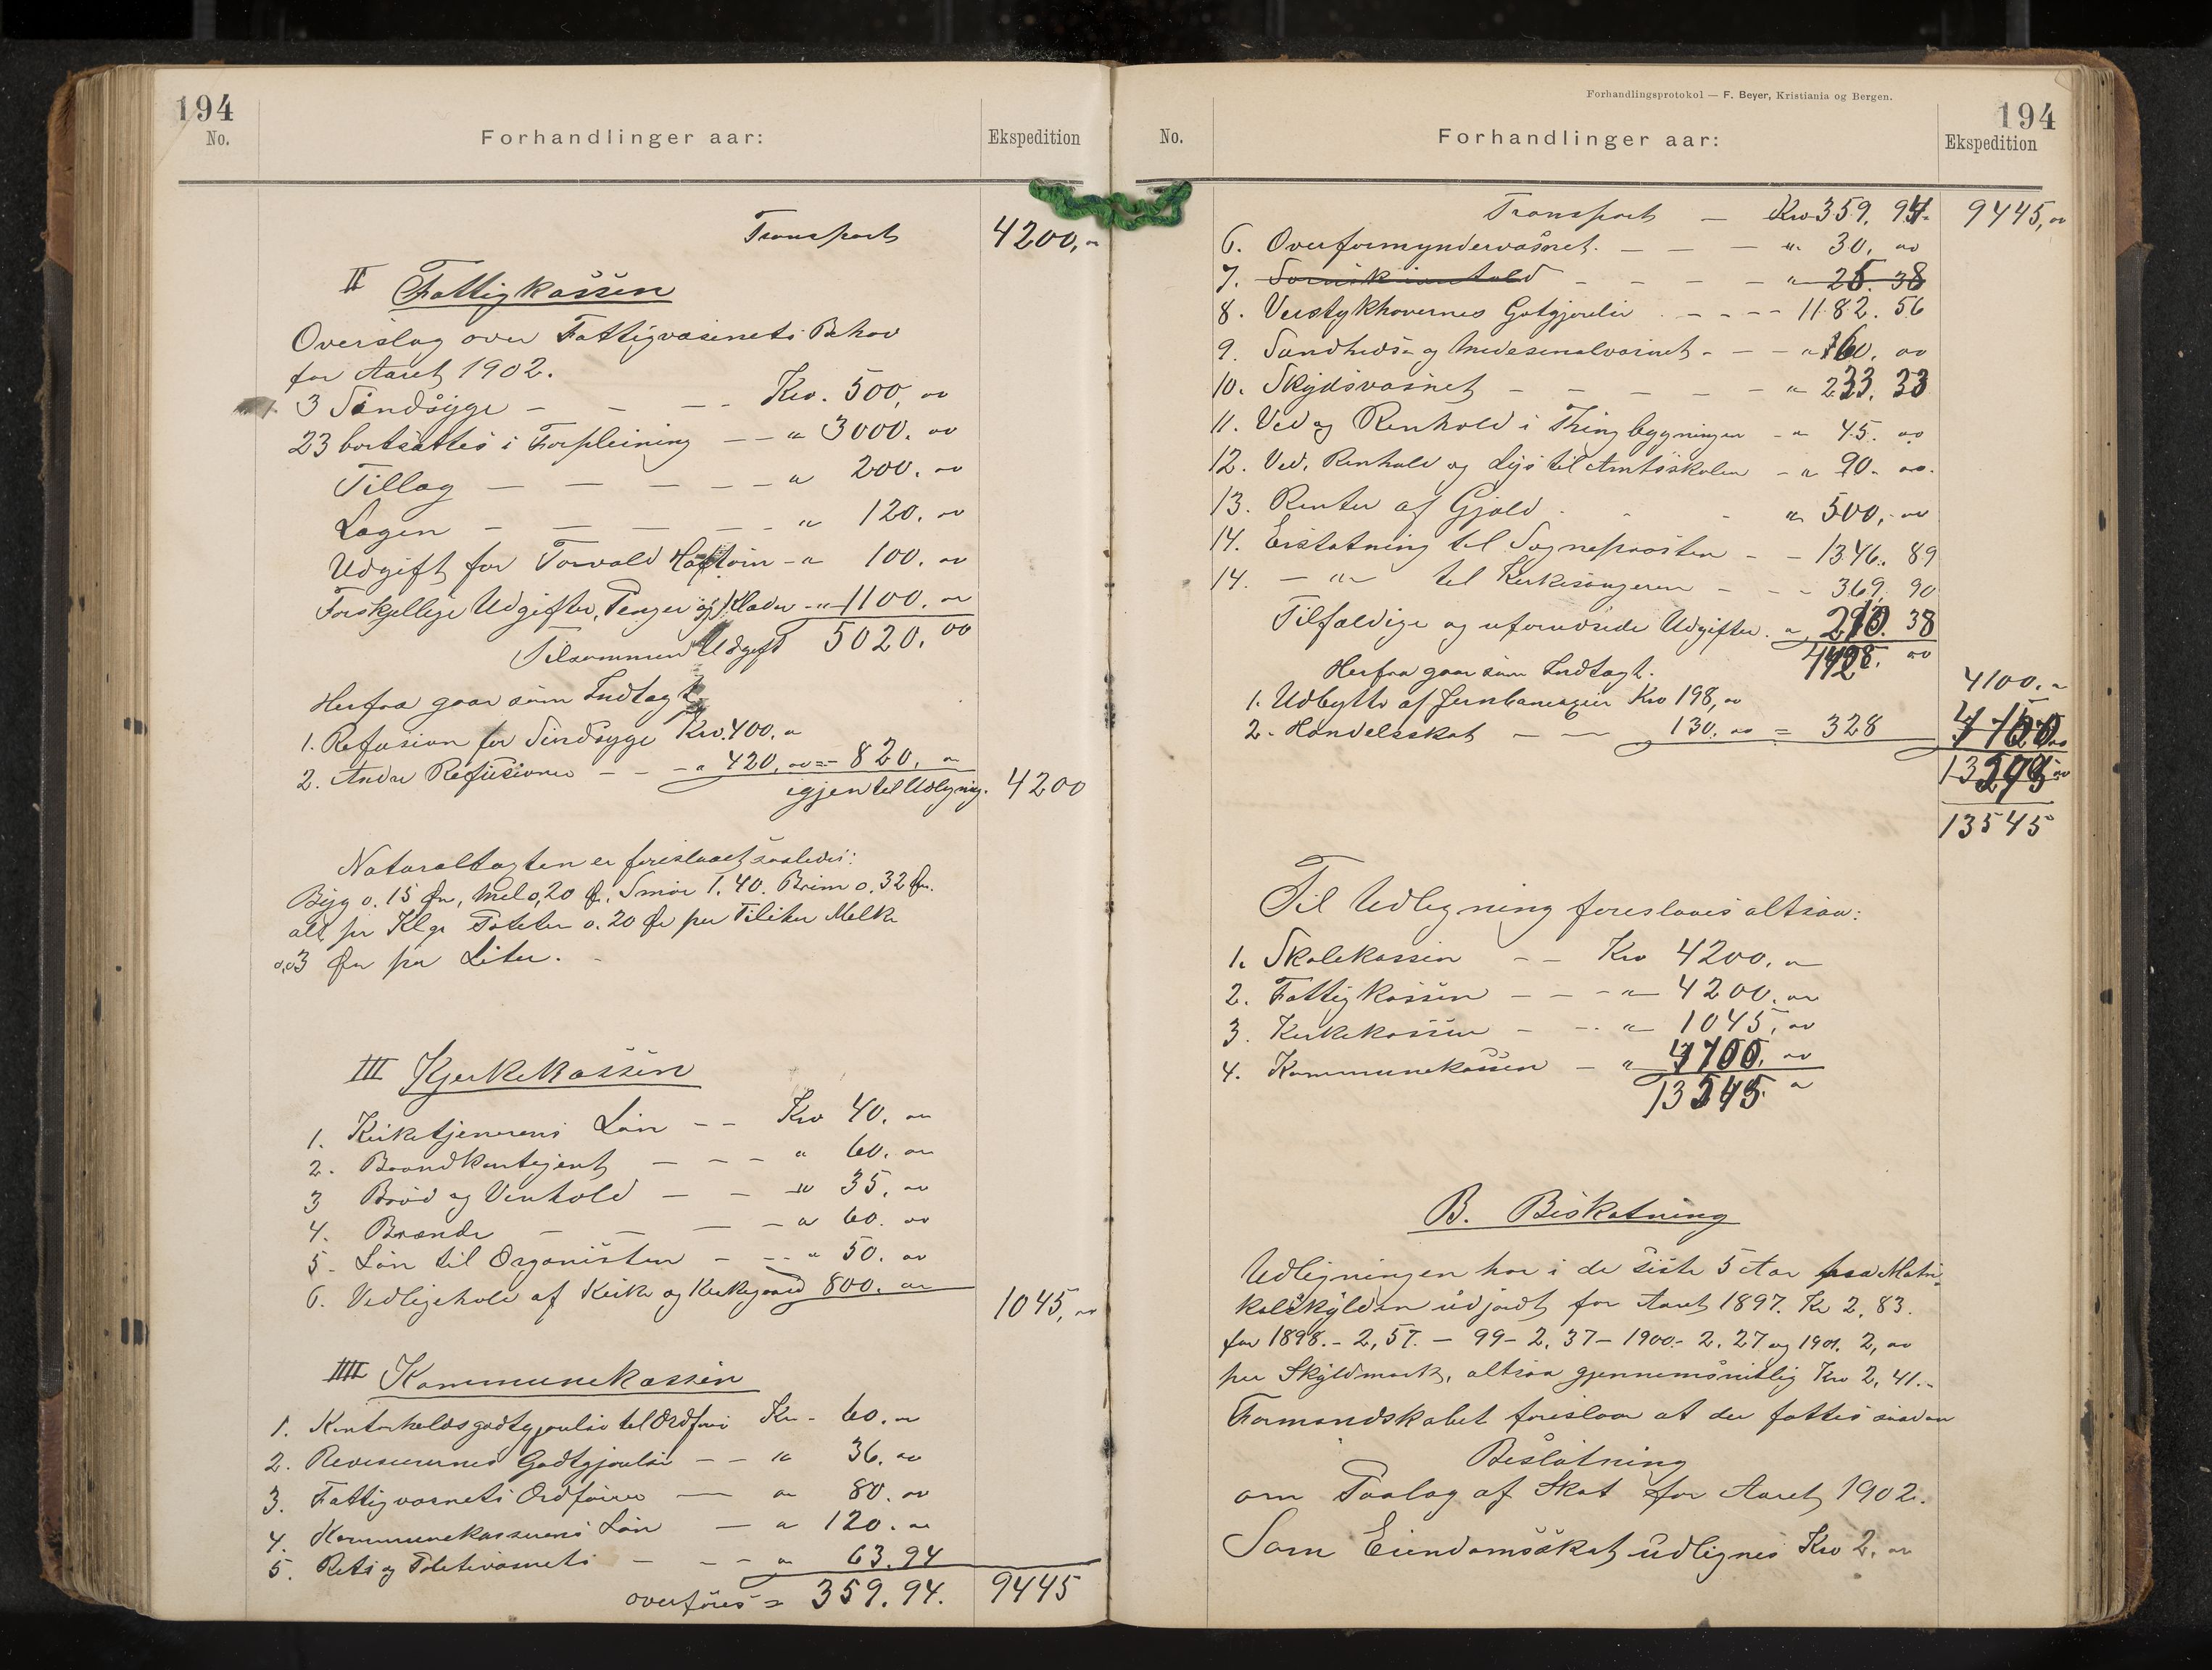 194
No. Forhandlinger aar: Ekspedition
Transport 4200,„
II Fattigkassen
Overslag over Fattigvæsenets Behov
for Aaret 1902.
3 Sindsyge – – – Kr. 500, 00
23 bortsattes i Forpleining – – „ 3000. 00
Tillæg – – – – – „ 200. 00
Lægen – – – – – „ 120. 00
Udgift for Torvald – „ 100. 00
Forskjellige Udgifter, Penger og Klæder – „ 1100. 00
Tilsammen Udgift 5020. 00
Herfra gaar som Indtægt
1. Refusion for Sindsyge Kr. 400. „
2. Andre Refusioner – – „ 420, 00 = 820. „
igjen til Udligning. 4200
Naturaltagten er foreslaaet saaledes:
Byg 0.15 Øre, Mel 0,20 Ø, Smør 1.40. Brim 0.32 Øre.
alt pr Klgr Poteter 0.20 Øre per Tiliter Melk
0,03 Øre per Liter.
III Kjerkekassen
1. Kirketjenerens Løn – – Kr 40. 00
2. Brandkontigent – – – „ 60. 00
3 Brød og Vinhold – – „ 35. 00
4. Brænde – – – – „ 60. 00
5. Løn til Organisten – – „ 50. 00
6. Vedligehold af Kirke og Kirkegaard 800. 00
1045, 00
IIII Kommunekassen
1. Kontorholdsgodtgjørelse til Ordfører Kr. 60. 00
2. Revisorernes Godtgjørelse – – „ 36. 00
3. Fattigvæsnets Ordfører – „ 80. 00
4. Kommunekassererens Løn – „ 120. 00
5. Rets og Politivæsnets – – – „ 63.94
overføres = 359.94. 9445
Forhandlingsprotokol — F. Beyer, Kristiania og Bergen.
194
No. Forhandlinger aar: Ekspedition
Transport – Kr 359. 94. 9445, 00
6. Overformyndervæsnet. – – – „ 30. 00
7. – – – – „ 25. 38
8. Godtgjørelse – – – – 1182. 56
9. Sundheds- og Medesinalvæsnet – – – „ 160. 00
10. Skydsvæsnet – – – – – „ 233. 33
11. Ved og Renhold i Thingbygningen – „ 45. 00
12. Ved, Renhold og Lys til Amtsskolen – „ 90. 00.
13. Renter af Gjæld – – „ 500, 00
14. Erstatning til Sognepræsten – – 1346. 89
14. – „ – til Kirkesangeren – – – 369, 90
Tilfældige og uforudsede Udgifter. „ 210. 38
4428. 00
Herfra gaar som Indtægt.
1. Udbytte af Jernbaneaxier Kr 198, 00
2. Handelsskat – – 130. 00 = 328
4100. „
13545
Til Udligning foreslaaes altsaa:
1. Skolekassen – – Kr 4200. 00
2. Fattigkassen – – – „ 4200. 00
3. Kirkekassen – – „ 1045, 00
4. Kommunekassen – „ 4100. 00
13545. „
B. Beskatning
Udligningen har i de siste 5 Aar paa Matri-
kulskylden udjordt for Aaret 1897. Kr 2,83.
for 1898.– 2,57. – 99– 2.37– 1900.– 2.27 og 1901. 2, 00
per Skyldmark, altsaa gjennemsnitlig Kr 2,41.–
Formandskabet foreslaar at der fattes saadan
Beslutning
om Paalæg af Skat for Aaret 1902.
Som Eiendomsskat udlignes Kr 2. 00